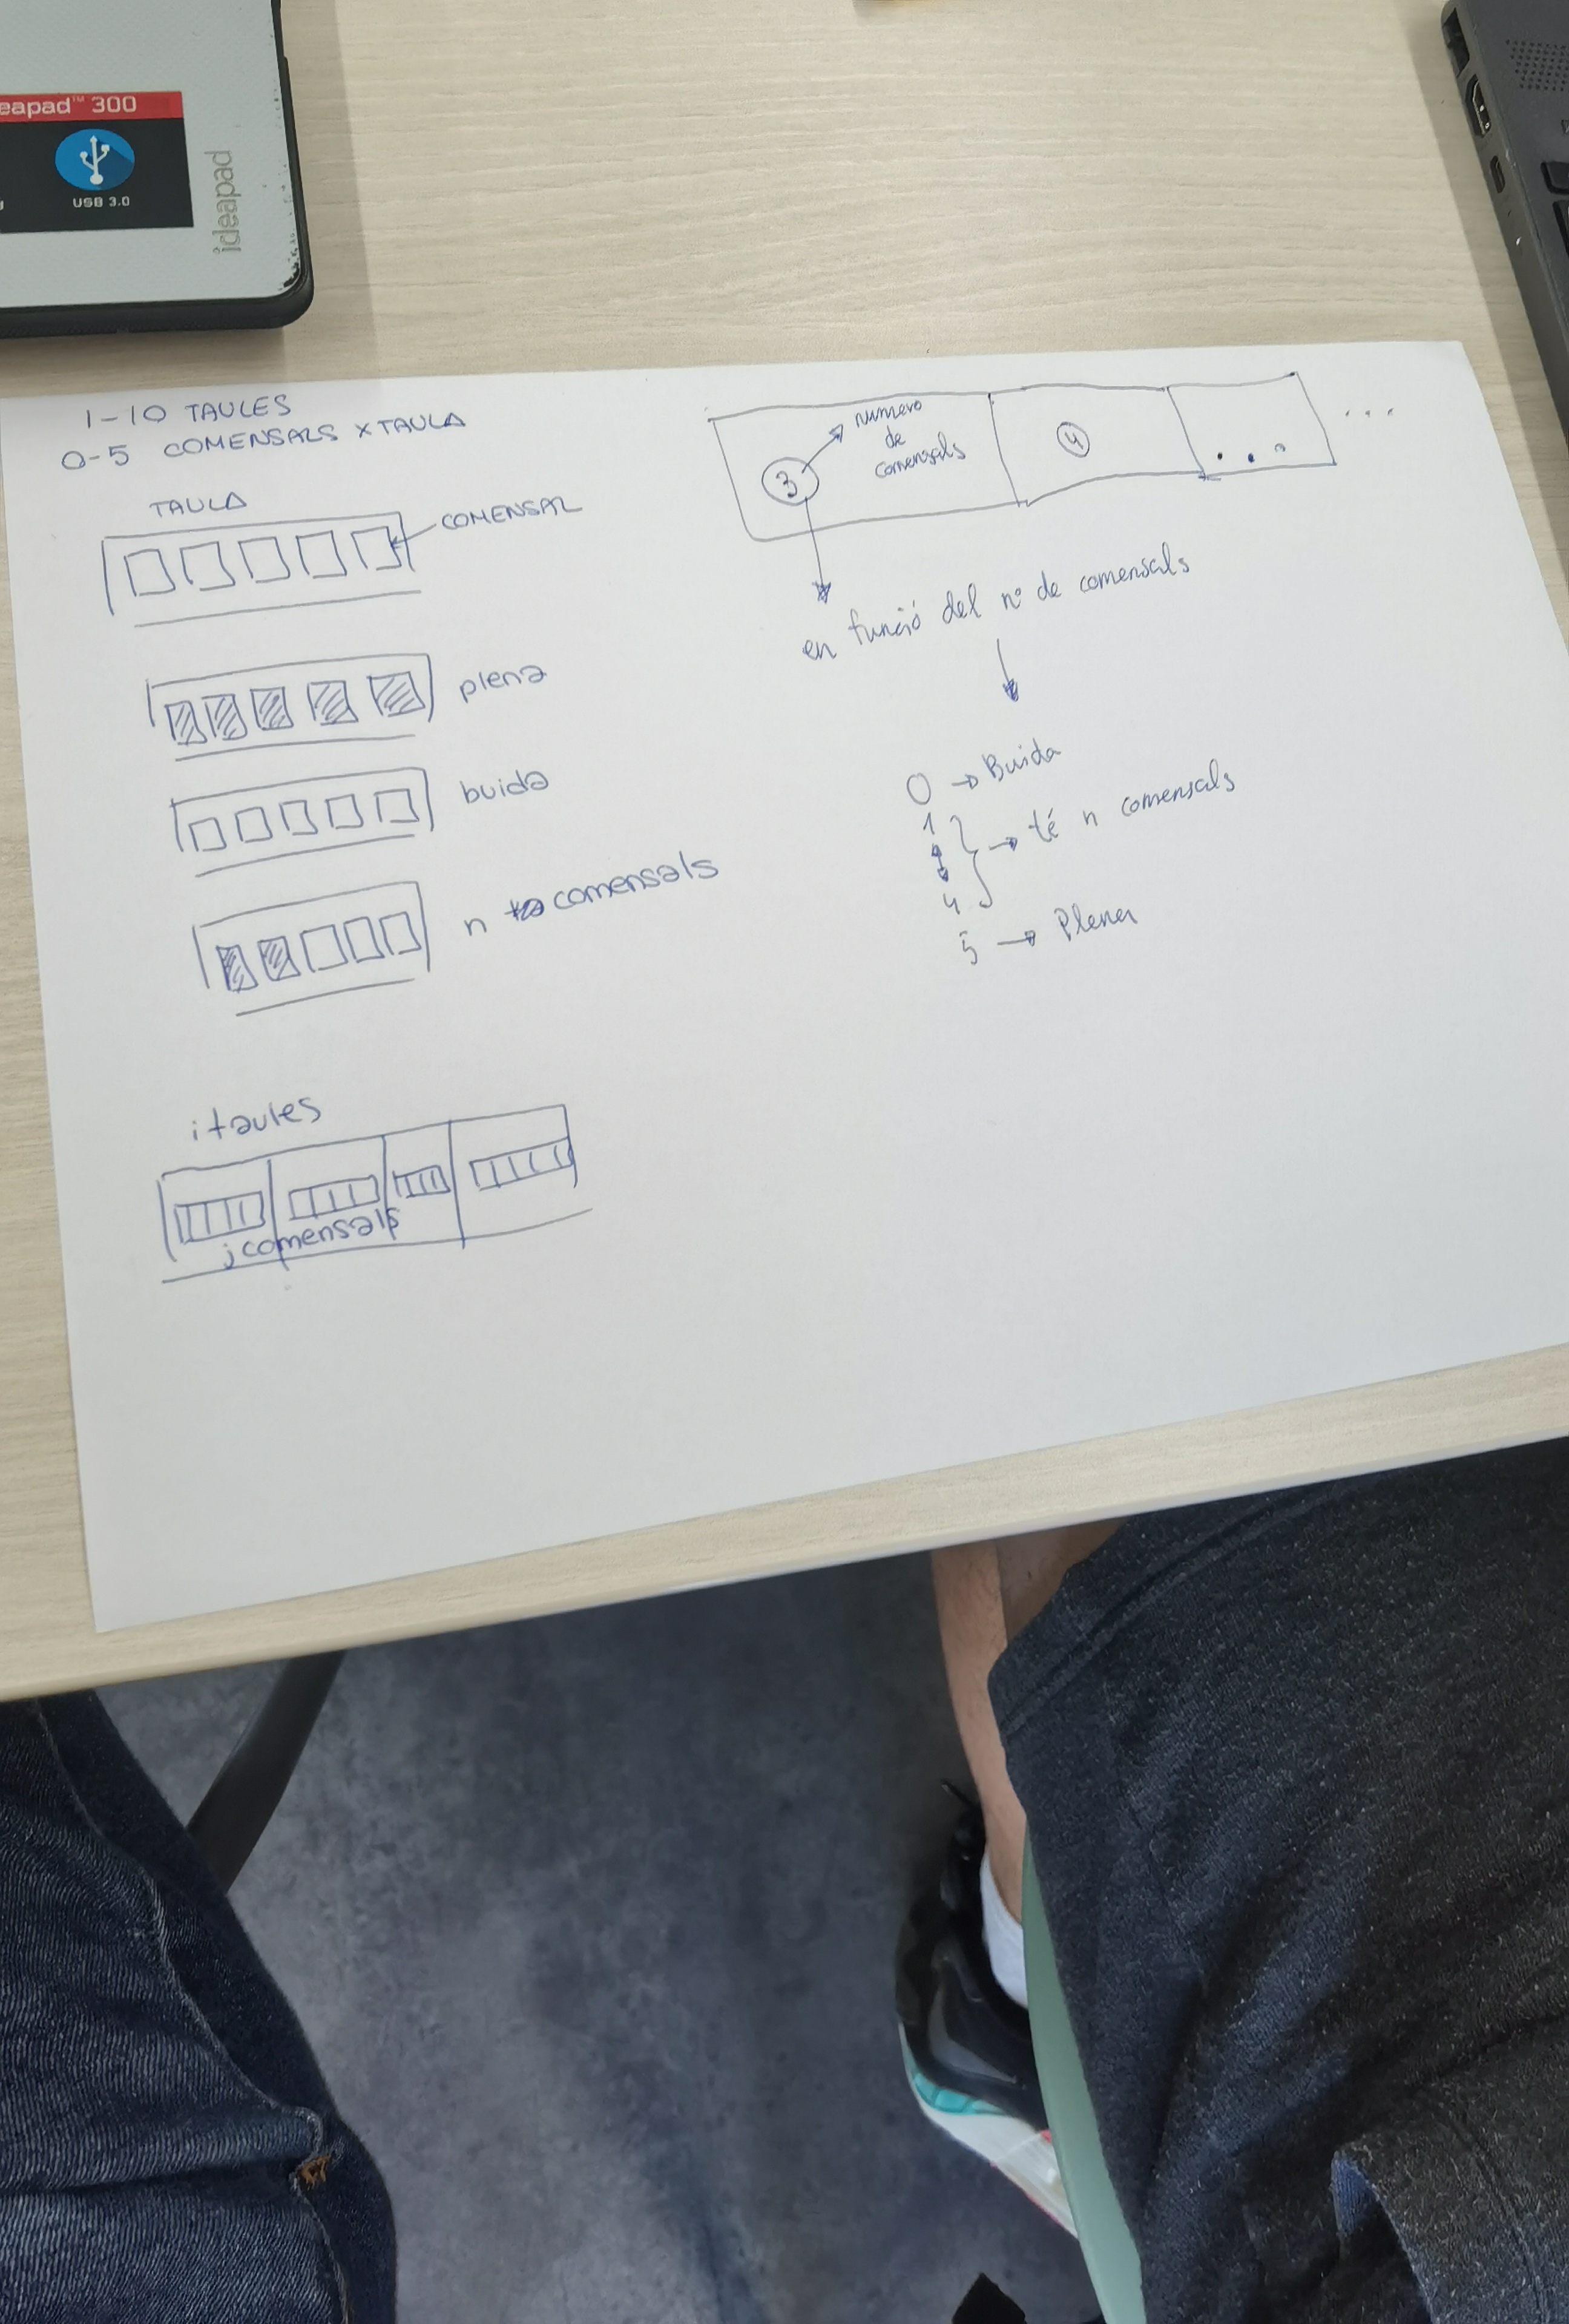 eapad™ 300
USB 3.0
ideapad
1-10 TAULES
0-5 COMENSALS X TAULA
TAULA
COMENSAL
plena
buida
n comensals
i taules
j comensals
3
numero
de
comensals
4
. . .
...
en funció del nº de comensals
0 → Buida
1
4
→ té n comensals
5 → Plena